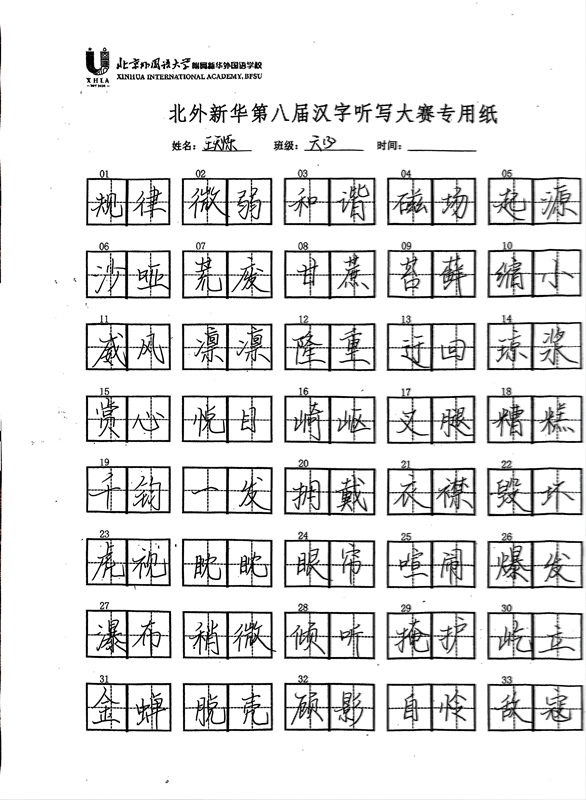 北京外国语大学附属新华外国语学校
XHIA
XINHUA INTERNATIONAL ACADEMY, BFSU
北外新华第八届汉字听写大赛专用纸
姓名： 班级： 时间：
01 02 03 04 05
规律 微弱 和谐 磁场 起源
06 07 08 09 10
沙哑 荒废 甘蔗 苔藓 缩小
11 12 13 14
威风 凛凛 隆重 迂回 琼浆
15 16 17 18
赏心 悦目 崎岖 叉腿 糟糕
19 20 21 22
千钧 一发 拥戴 衣襟 毁坏
23 24 25 26
虎视 眈眈 眼帘 喧闹 爆发
27 28 29 30
瀑布 稍微 倾听 掩护 屹立
31 32 33
金蝉 脱壳 顾影 自怜 敌寇